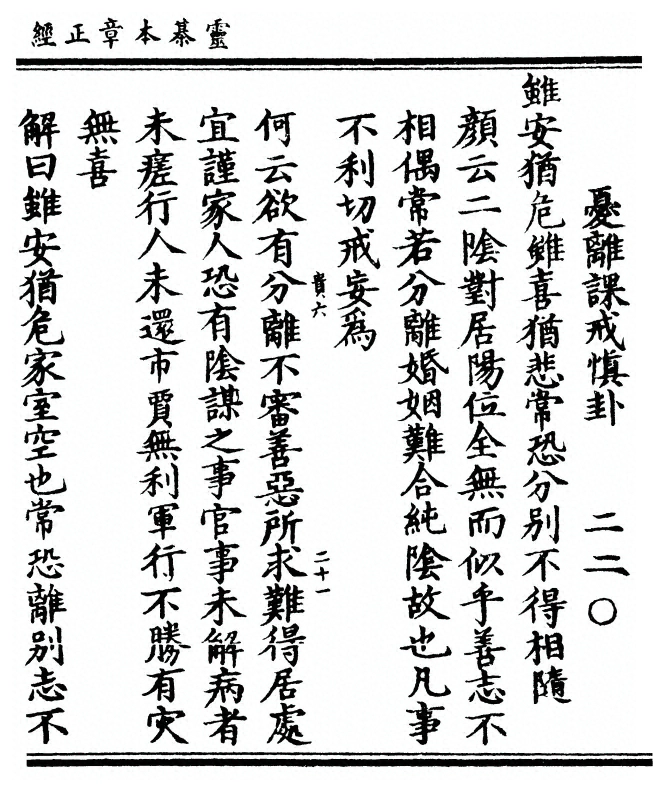 靈棊本章正經
憂離課戒慎卦　二二〇
雖安猶危雖喜猶悲常恐分别不得相隨
顏云二陰對居陽位全無而似乎善志不
相偶常若分離婚姻難合純陰故也凡事
不利切戒妄爲
貴六
二十一
何云欲有分離不審善惡所求難得居處
宜謹家人恐有陰謀之事官事未解病者
未瘥行人未還市賈無利軍行不勝有灾
無喜
解曰雖安猶危家室空也常恐離别志不